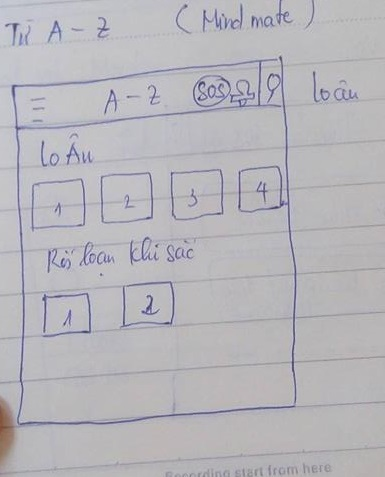 Từ A - Z (Mind mate)
A - Z SOS
lo Âu
lo Âu
1 2 3 4
Rối loạn khí sắc
1 2
Recording start from here